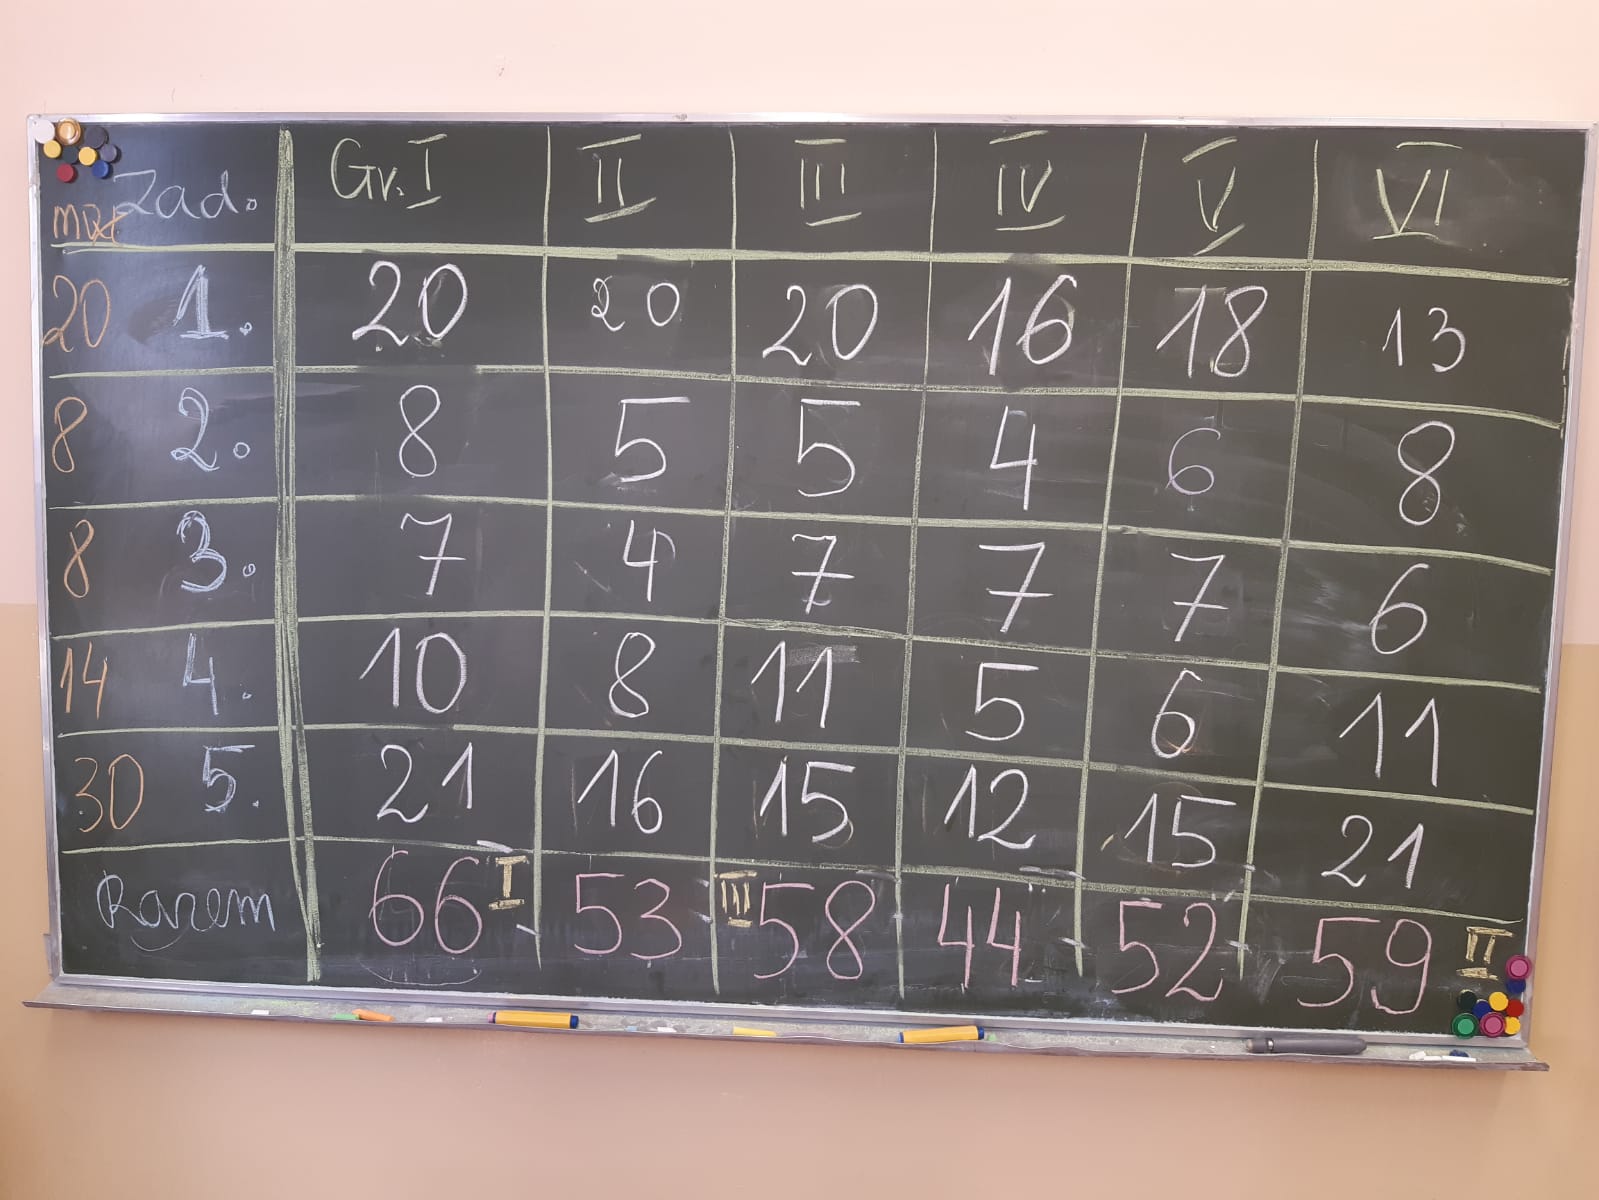 Zad. Gr. I II III IV V VI
max
20 1. 20 20 20 16 18 13
8 2. 8 5 5 4 6 8
8 3. 7 4 7 7 7 6
14 4. 10 8 11 5 6 11
30 5. 21 16 15 12 15 21
Razem 66 I 53 III 58 44 52 59 II